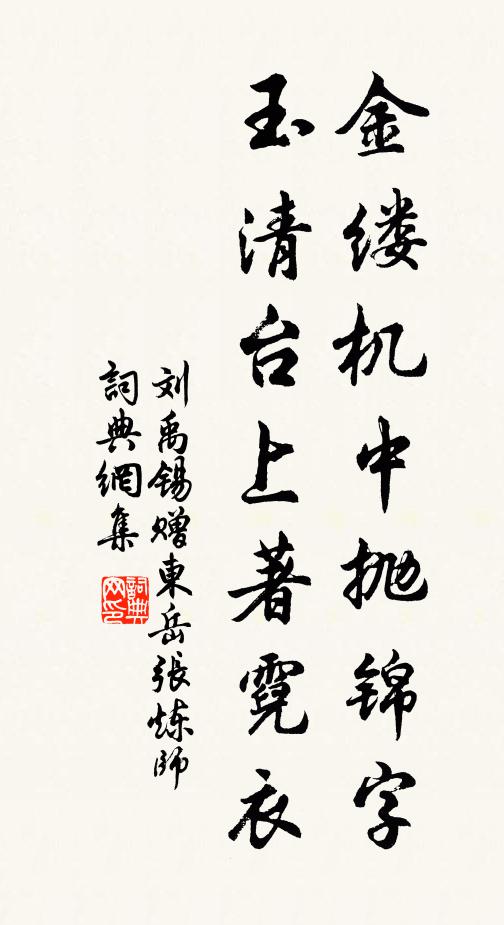 金缕机中抛锦字
玉清台上著霓衣
刘禹锡赠東岳張炼師
詞典網集
詞典网印